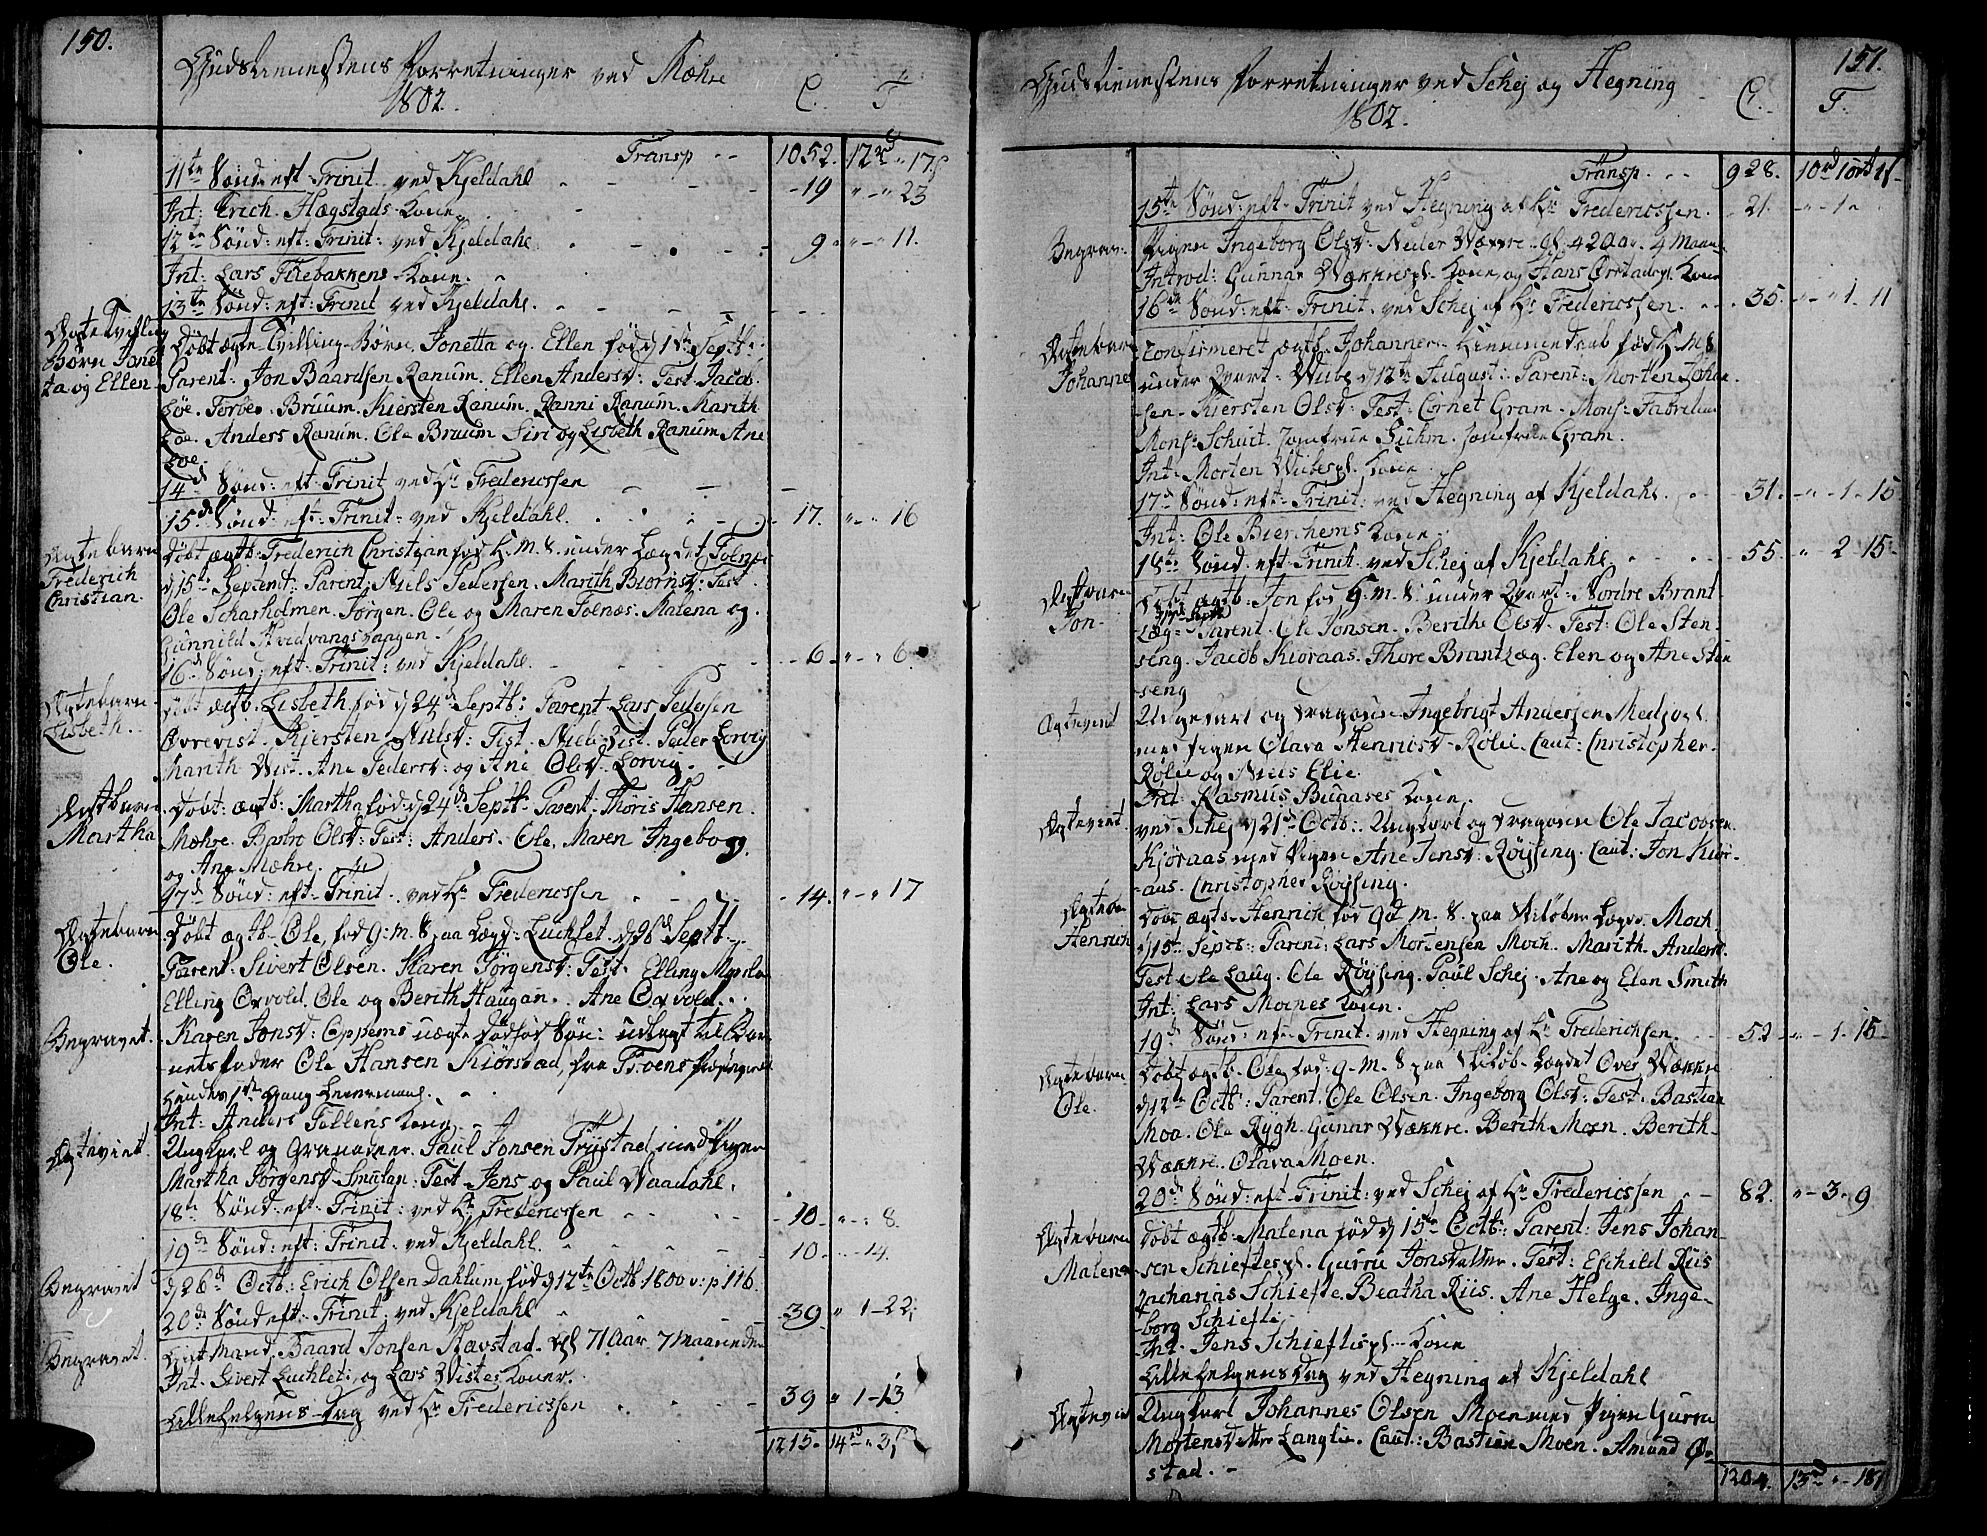 150.
Gudstienestens Forretninger ved Mæhre
1802.
C. T
Transp -- 1052. 12rd " 17s
11te Sønd: eft: Trinit. ved Kjeldahl - 19 " - " 23
Int: Erich Hægstads Kone
12te Sønd: eft: Trinit: ved Kjeldahl - 9 " - " 11.
Int: Lars Fiirebakkens Kone. -
13te Sønd: eft: Trinit ved Kjeldahl. -
Ægte Tvilling
Børn Jonet
ta og Ellen
Døbt ægte Tvilling-Børn Jonetta og Ellen fød d 1ste Septb:
Parent: Jon Baardsen Ranum. Ellen Andersd: Test Jacob
Løe. Torber Bruum. Kiersten Ranum. Ranni Ranum. Marith
Løe. Anders Ranum. Ole Bruum Siri og Lisbeth Ranum Ane
Løe.
14d Sønd: eft: Trinit ved Hr Fredericssen - - -
15d Sønd: eft: Trinit: ved Kjeldahl. - 17. " - " 16
Ægtebarn
Frederich
Christian.
Døbt ægtb: Frederich Christian fød H. M. S. under Lægdet Folnæs
d 15te Septemb: Parent: Niels Pedersen. Marith Biørnsd: Test.
Ole Schasholmen. Jørgen. Ole og Maren Folnos. Malena og
Gunnild Hvedvangshaugen.
16d Sønd: eft: Trinit: ved Kjeldahl. - 6 - " - " 6.
Ægtebarn
Lisbeth.
Døbt ægtb: Lisbeth fød d 24d Septb: Parent Lars Pedersen
Øvrevist. Kjersten Nilsd: Test. Niels Vist. Peder Lorvig
Marith Vist. Ane Pedersd: og Ane Olsd Lorvig.
Ægtbarn
Martha
Døbt: ægtb: Martha fød d 24d Septb: Parent: Thoris Hansen
Mæhre Olsd: Test: Anders. Ole. Maren Ingeborg.
og Ane Mæhre.
17d Sønd: eft: Trinit. ved Hr Fredericssen - 14. " - " 17
Ægtebarn
Ole.
Døbt ægtb: Ole, fød g: m. S paa Lægd: Luchset d 26d Septb.
Parent: Sivert Olsen. Karen Jørgensd: Test. Elling
Elling Oxvold. Ole og Berith Haugan. Ane Oxvold.
Begravet.
Karen Jonsd: Oppems uægte dødfød Søn: udlagt til Bar
netsfader Ole Hansen Kiørstad, fra
hendes 1ste Gang Leiermaal. -
Int: Anders Tellens Kone -
Ægteviet.
Ungkarl og Granadeer Paul Jonsen Trÿstad med Pigen
Martha Jørgensd Smulan: Test Jens og Paul Waadahl.
18te Sønd: eft: Trinit: ved Hr Fredericssen - 10. " - : 8.
19d Sønd: eft: Trinit. ved Kjeldahl. - 10 - - 14.
Begravet
d 26d Octb: Erich Olsen Dahlum fød d 12te Octb 1800 v: p 116.
20d Sønd eft: Trinit: ved Kjeldahl - 39 " 1 - 22;
Begravet.
Gift Mand Baard Jonsen Havstad. Gl 71 Aar 7 Maaneder
Int. Sivert Luchset: og Lars Wistes Koner.
Lillehelgens Dag ved Hr Fredericssen - 39 " 1 - 13
1215. 14rd " 3s
151.
Gudstienestens Forretninger ved Schej og Hegning
1802.
C. T.
Transp. - - 928. 10rd 1ort 1s
15te Sønd: eft: Trinit ved Hegning af Hr Fredericssen. 21. - " 1 -
Begrav:
Pigen Ingeborg Olsd: Neder Wækre gl. 42 Aar 4 Maan:
Introd: Gunnar Wækrespl. Kone og Hans Ørstadspl. Kone
16d Sønd: eft: Trinit. ved Schej af Hr Fredericssen. - 35. " - 1 - 11
Ægtebarn
Johanne
Confirmeret ægtb. Johanne Hiemmedøb fød H. M S.
under Qvart. Wibe d 12te August: Parent: Morten Johan
sen. Kiersten Olsd: Test: Cornet Gram. Mons: Fabritius
Mons: Schuit. Jomfrue Suhm. Jomfrue Gram.
Int: Morten Wibespl. Kone.
17d Sønd: eft: Trinit: ved Hegning af Kjeldahl. - 31. - " 1 - 15
Int: Ole Bierchems Kone.
18te Sønd: eft: Trinit: ved Schej af Kjeldahl. - 55. " 2 - 15
Ægtbarn
Jon.
Døbt ægtb: Jon fød g. m. S: under Qvart: Nordre Brant
Læg: 17d Septb Parent. Ole Jonsen. Berithe Olsd. Test: Ole Sten
seng. Jacob Kioraas. Thore Brantlæg. Elen og Ane Sten
seng
Ægteviet
Ungkarl og Dragoun Ingebrigt Andersen Medjaa
med Pigen Olava Henricsd Rølie. Caut: Christopher
Rølie og Niels Elie.
Int: Rasmus Bunases Kone.
Ægteviet.
ved Schej d 21d Octb: Ungkarl og Dragoun Ole Jacobsen
Kjøraas med Pigen Ane Jensd: Røysing. Caut: Jon Kiør-
aas. Christopher Røysing.
Ægteba
Henrich
Døbt ægtb. Henrich fød gd m. S. paa Vikøbn Lægd. Moch
d 15te Septb: Parent: Lars Mortensen Moch. Marith Andersd.
Test Ole Laug. Ole Røysing. Paul Schej. Ane og Elen Smith
Int: Lars Moches Kone.
19d Sønd: eft: Trinit: ved Hegning af Hr Frederichsen. - 52 - " - 1 - 15
Ægtebarn
Ole.
Døbt ægtb. Ole fød g. m. S paa Vikøb. Lægdet Over Wækre
d 12te Octb: Parent. Ole Olsen. Ingeborg Olsd: Test: Bastian
Moa. Ole Rygh. Gunar Wækre. Berith Moen. Berith
Wækre. Olava Moen.
20d Sønd: eft: Trinit: ved Schej af Hr Fredericssen - 82. " - 3 " 9
Ægtebarn
Malena
Døbt ægtb: Malena fød d 15te Octb: Parent: Jens Johan-
sen Schieftespl. Gurru Jonsdatter. Test: Eschild Riis
Zacharias Schiefte. Beatha Riis. Ane Helge. Inge-
borg Schiefti.
Int. Jens Schieftispl. Kone
Lillehelgens Dag ved Hegning af Kjeldahl
Ægteviet
Ungkarl Johannes Olsen Moen med Pigen Gurru
Mortensdatter Langlie. Caut: Bastian Moen. Amund Ør-
stad. -
1204. 13rd " - 18s